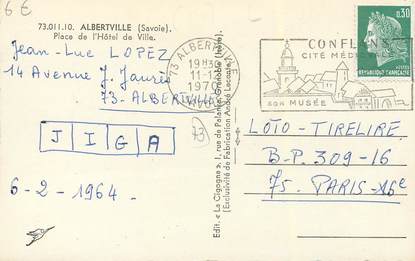 6€
73.011.10. ALBERTVILLE (Savoie).
Place de l'Hôtel de Ville.
Jean-Luc LOPEZ
14 Avenue J. Jaurès
73-ALBERTVILLE
J I G A
6-2-1964-
73 ALBERTVILLE
19H30
11-12
1970
73
Edit. « La Cigogne », 1, rue de Palanka, Grenoble (Isère).
(Exclusivité de Fabrication André Leconte)
CONFLANS
CITÉ MÉDIÉVALE
SON MUSÉE
0,30
POSTES
REPUBLIQUE FRANÇAISE
LOTO-TIRELIRE
B-P. 309-16
75-PARIS-16e